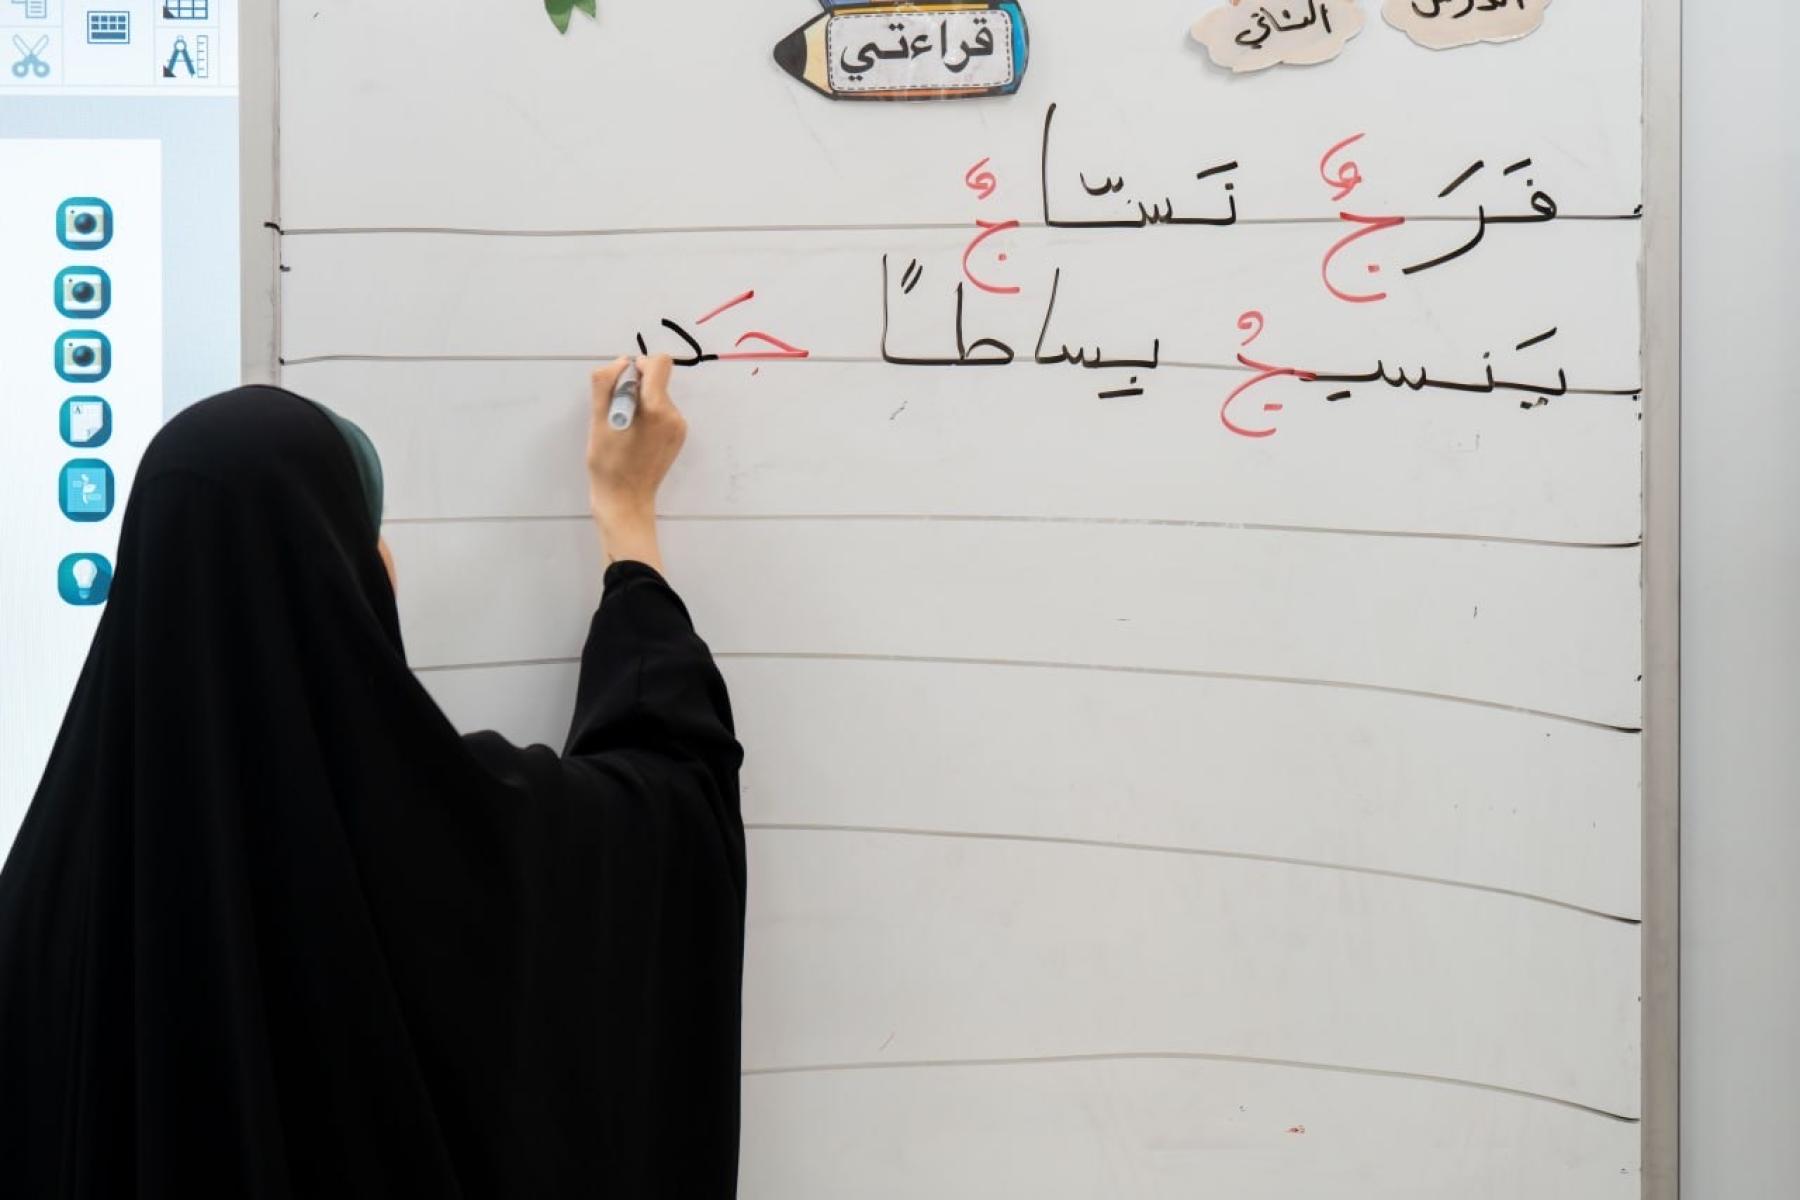 الدرس الثاني
قراءتي
فَرَجٌ نَسّاجٌ
يَنسيجُ بِساطًا جَد